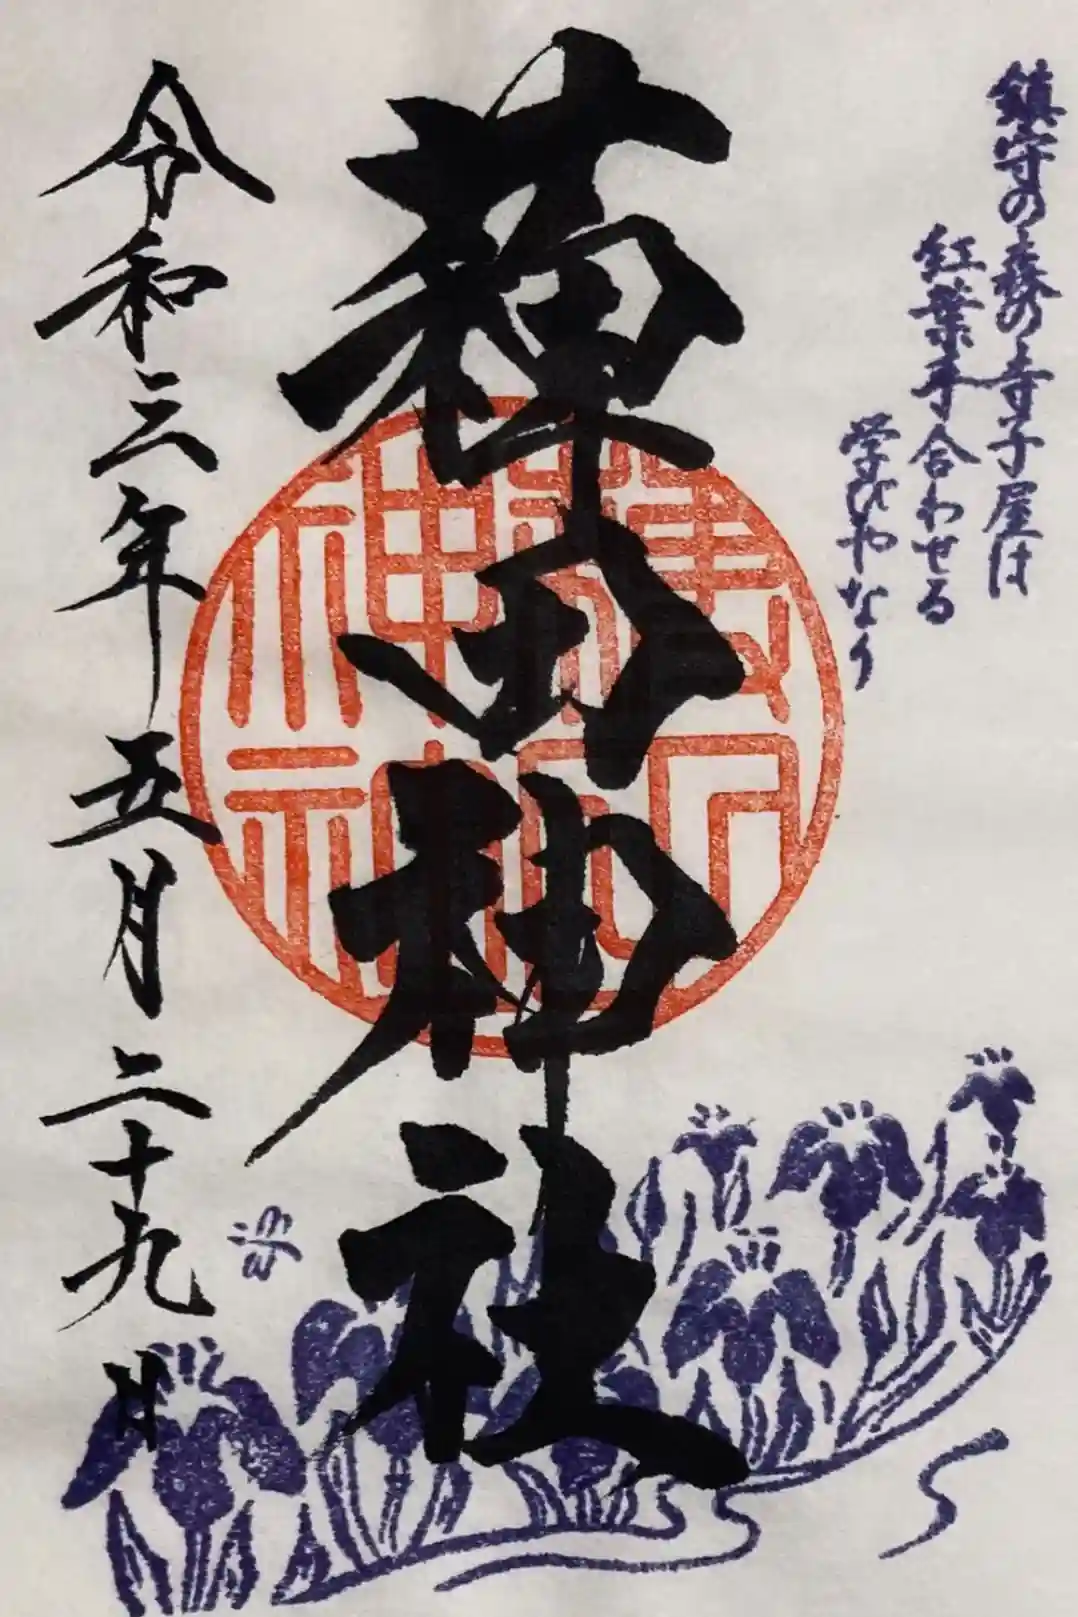 鎮守の森の寺子屋は
紅葉手合わせる
学びやなり
薭田神社
令和三年五月二十九日